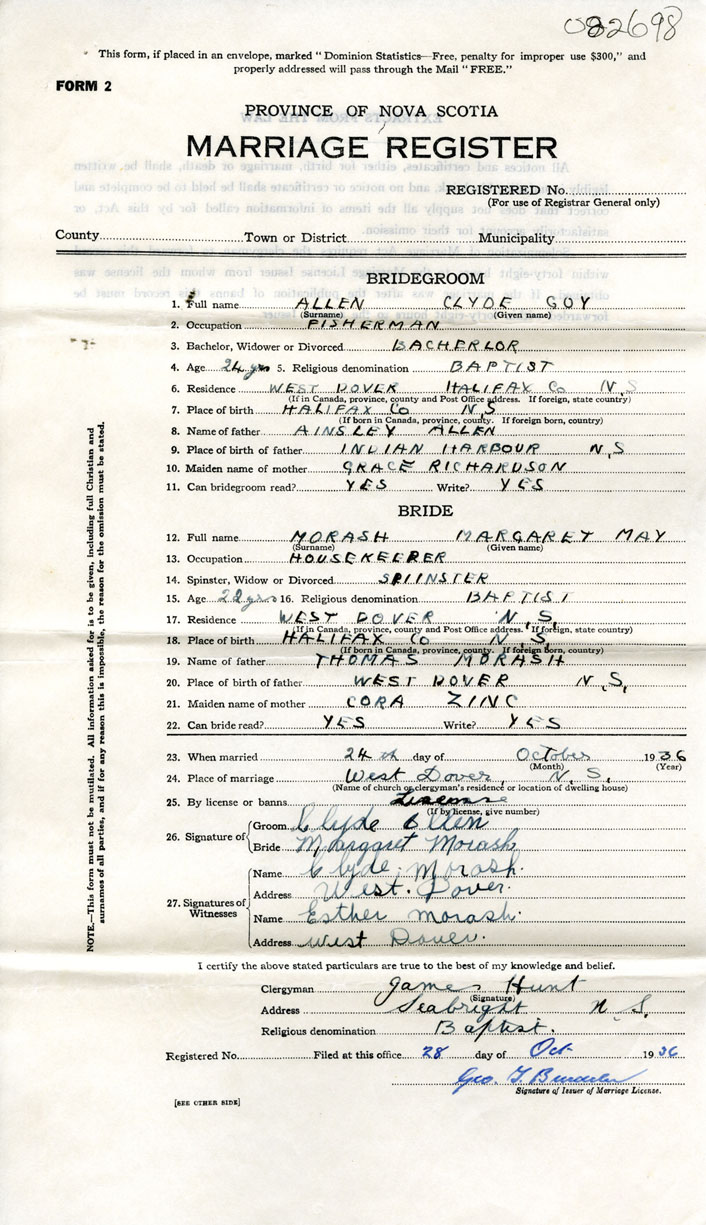 022698
This form, if placed in an envelope, marked "Dominion Statistics—Free, penalty for improper use $300," and
properly addressed will pass through the Mail "FREE."
FORM 2
PROVINCE OF NOVA SCOTIA
MARRIAGE REGISTER
REGISTERED No.
(For use of Registrar General only)
County Town or District Municipality
BRIDEGROOM
1. Full name ALLEN CLYDE GOY
(Surname) (Given name)
2. Occupation FISHERMAN
3. Bachelor, Widower or Divorced BACHERLOR
4. Age 24 yrs 5. Religious denomination BAPTIST
6. Residence WEST DOVER HALIFAX Co N.S
(If in Canada, province, county and Post Office address. If foreign, state country)
7. Place of birth HALIFAX Co N,S
(If born in Canada, province, county. If foreign born, country)
8. Name of father AINSLEY ALLEN
9. Place of birth of father INDIAN HARBOUR N,S
10. Maiden name of mother GRACE RICHARDSON
11. Can bridegroom read? YES Write? YES
BRIDE
12. Full name MORASH MARGARET MAY
(Surname) (Given name)
13. Occupation HOUSEKEEPER
14. Spinster, Widow or Divorced SPIINSTER
15. Age 22 yrs 16. Religious denomination BAPTIST
17. Residence WEST DOVER N,S,
(If in Canada, province, county and Post Office address. If foreign, state country)
18. Place of birth HALIFAX Co N,S,
(If born in Canada, province, county. If foreign born, country)
19. Name of father THOMAS MORASH
20. Place of birth of father WEST DOVER N,S,
21. Maiden name of mother CORA ZINC
22. Can bride read? YES Write? YES
23. When married 24th day of October 1936
(Month) (Year)
24. Place of marriage West Dover, N,S,
(Name of church or clergyman's residence or location of dwelling house)
25. By license or banns License
(If by license, give number)
26. Signature of Groom Clyde Allen
Bride Margaret Morash
27. Signatures of Witnesses Name Clyde Morash.
Address West. Dover.
Name Esther Morash.
Address West Dover.
I certify the above stated particulars are true to the best of my knowledge and belief.
Clergyman James Hunt
(Signature)
Address Seabright N.S.
Religious denomination Baptist.
Registered No. Filed at this office 28 day of Oct 1936
Geo.
Signature of Issuer of Marriage License.
[SEE OTHER SIDE]
NOTE.—This form must not be mutilated. All information asked for is to be given, including full Christian and
surnames of all parties, and if for any reason this is impossible, the reason for the omission must be stated.